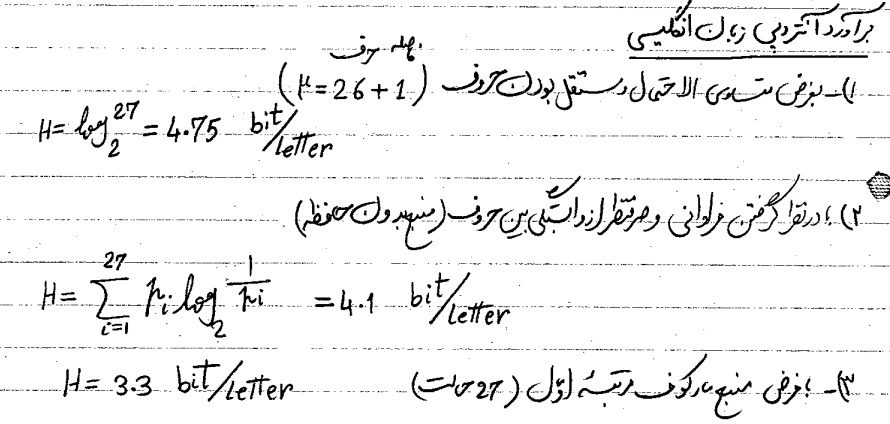 برآورد آنتروپی زبان انگلیسی
۱)- بفرض متساوی الاحتمال و مستقل بودن حروف (μ = 26 + 1)
H = log₂ 27 = 4.75 bit/letter
۲) با در نظر گرفتن فراوانی و صرفنظر از وابستگی بین حروف (منبع بدون حافظه)
H = ∑_{i=1}^{27} pᵢ log₂ 1/pᵢ = 4.1 bit/letter
۳)- با فرض منبع مارکوف مرتبهٔ اول (27 حالت) H = 3.3 bit/letter